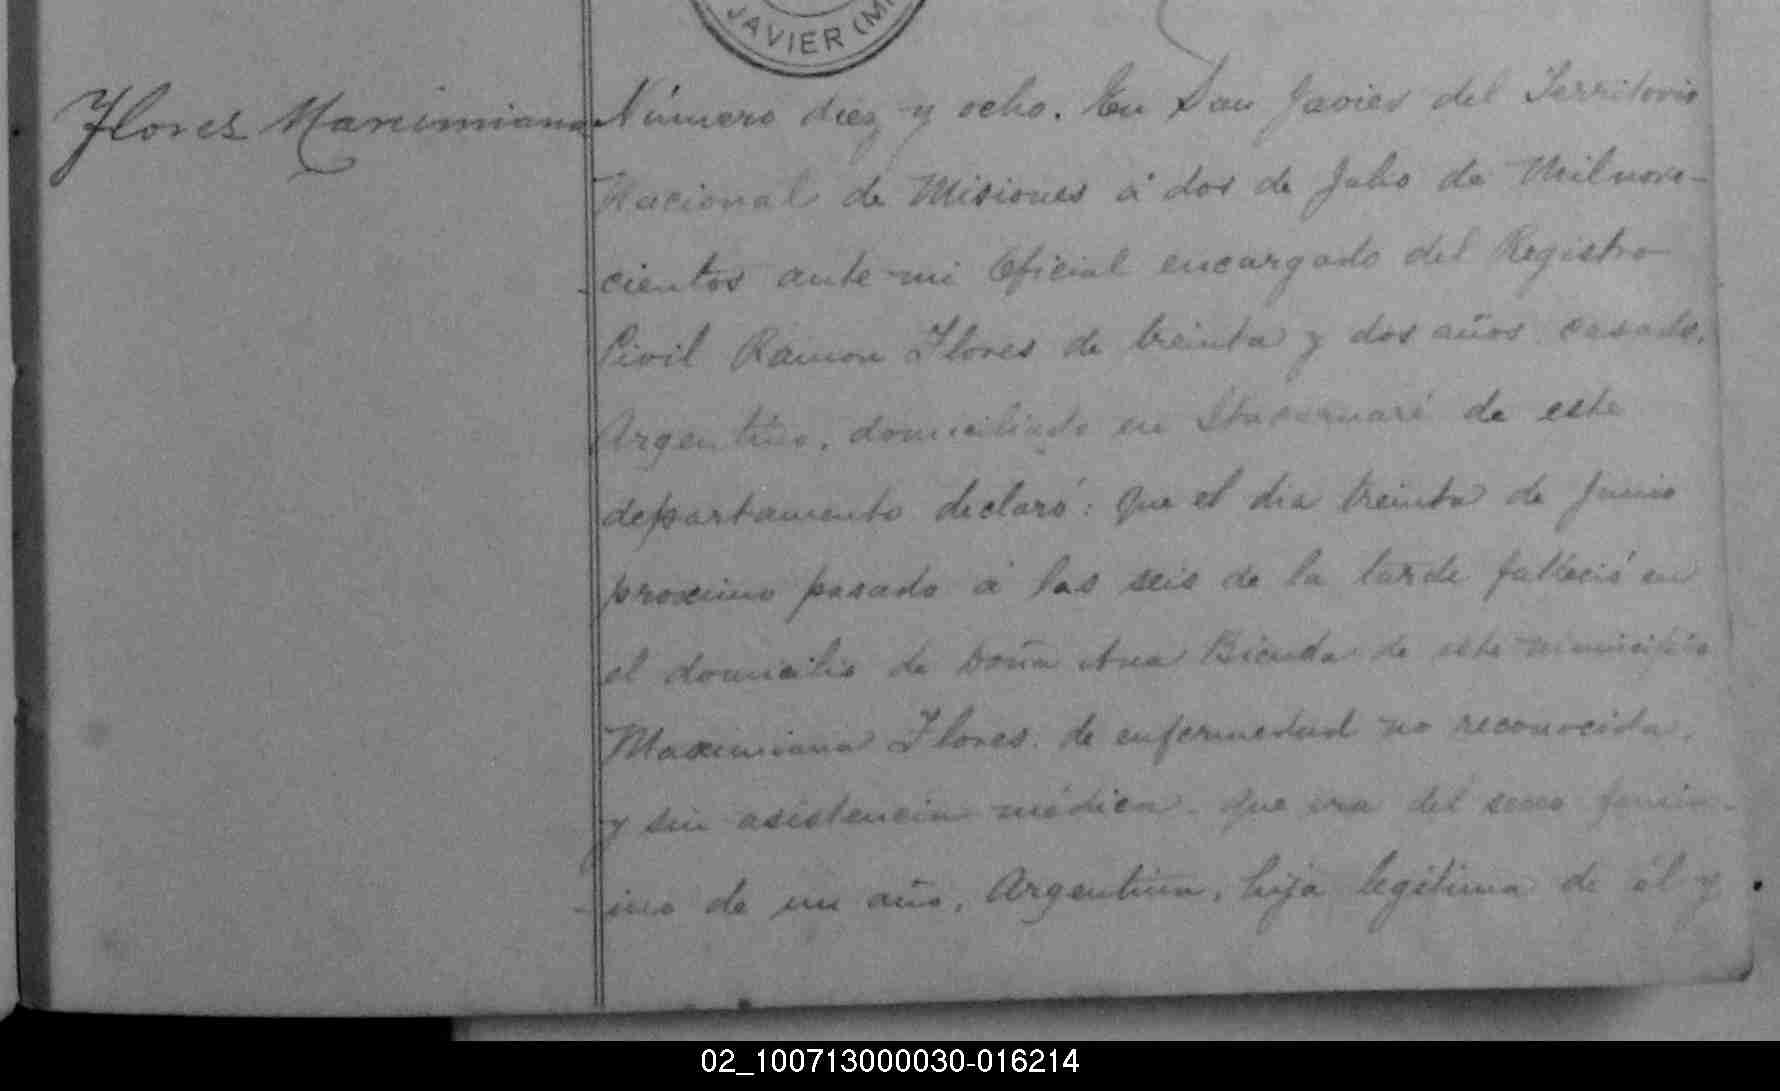 JAVIER (MI
Flores Maximiana
Número diez y ocho. En San Javier del Territorio
Nacional de Misiones á dos de Julio de Mil nove-
cientos ante mi Oficial encargado del Registro
Civil Ramon Flores de treinta y dos años casado,
Argentino, domiciliado en Itacaruaré de este
departamento declaró: Que el dia treinta de Junio
proximo pasado á las seis de la tarde falleció en
el domicilio de Doña Ana de este municipio
Maximiana Flores. de enfermedad no reconocida,
y sin asistencia médica. Que era del sexo femen-
ino de un año, Argentina, hija legítima de él y
02_100713000030-016214